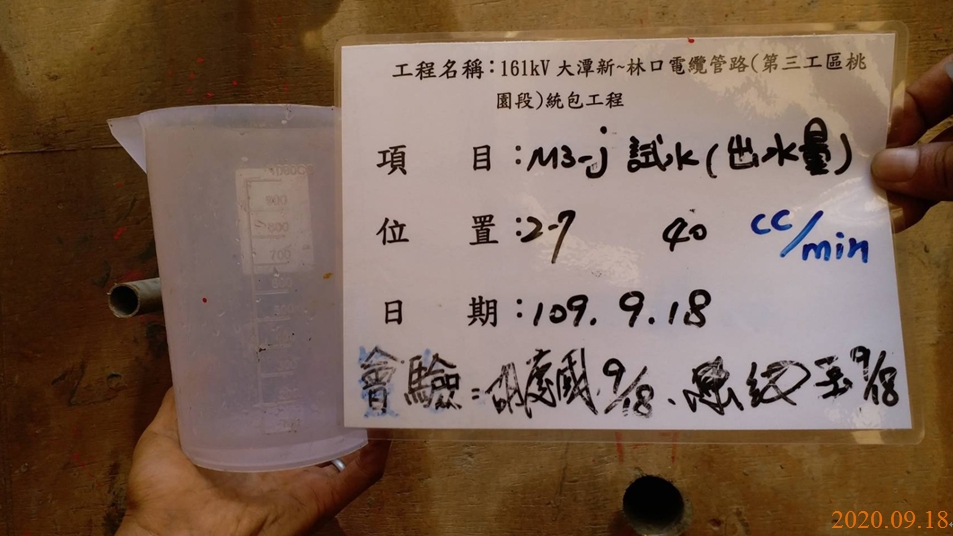 工程名稱：161kV 大潭新~林口電纜管路(第三工區桃
園段)統包工程
項 目：M3-j 試水(出水量)
位 置：2-7 40 cc/min
日 期：109. 9. 18
會驗： 9/18、 9/18
900
800
700
2020.09.18